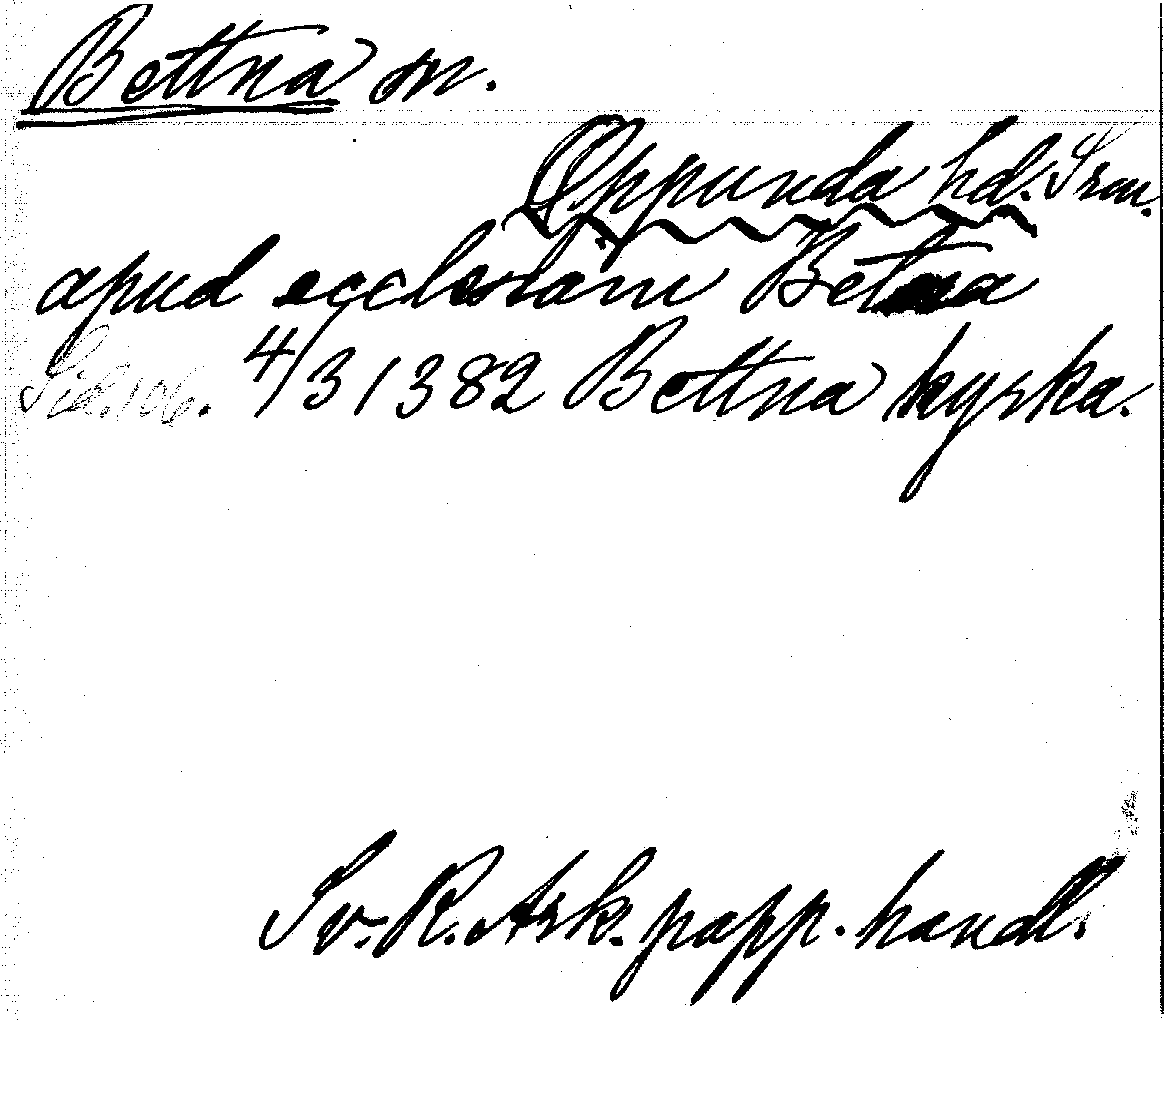 Bettna sn.
Oppunda hd. Srm.
apud ecclesiam Betna
Sid. 106. 4/3 1382 Bettna kyrka.
Sv. R. Ark. papp. handl.